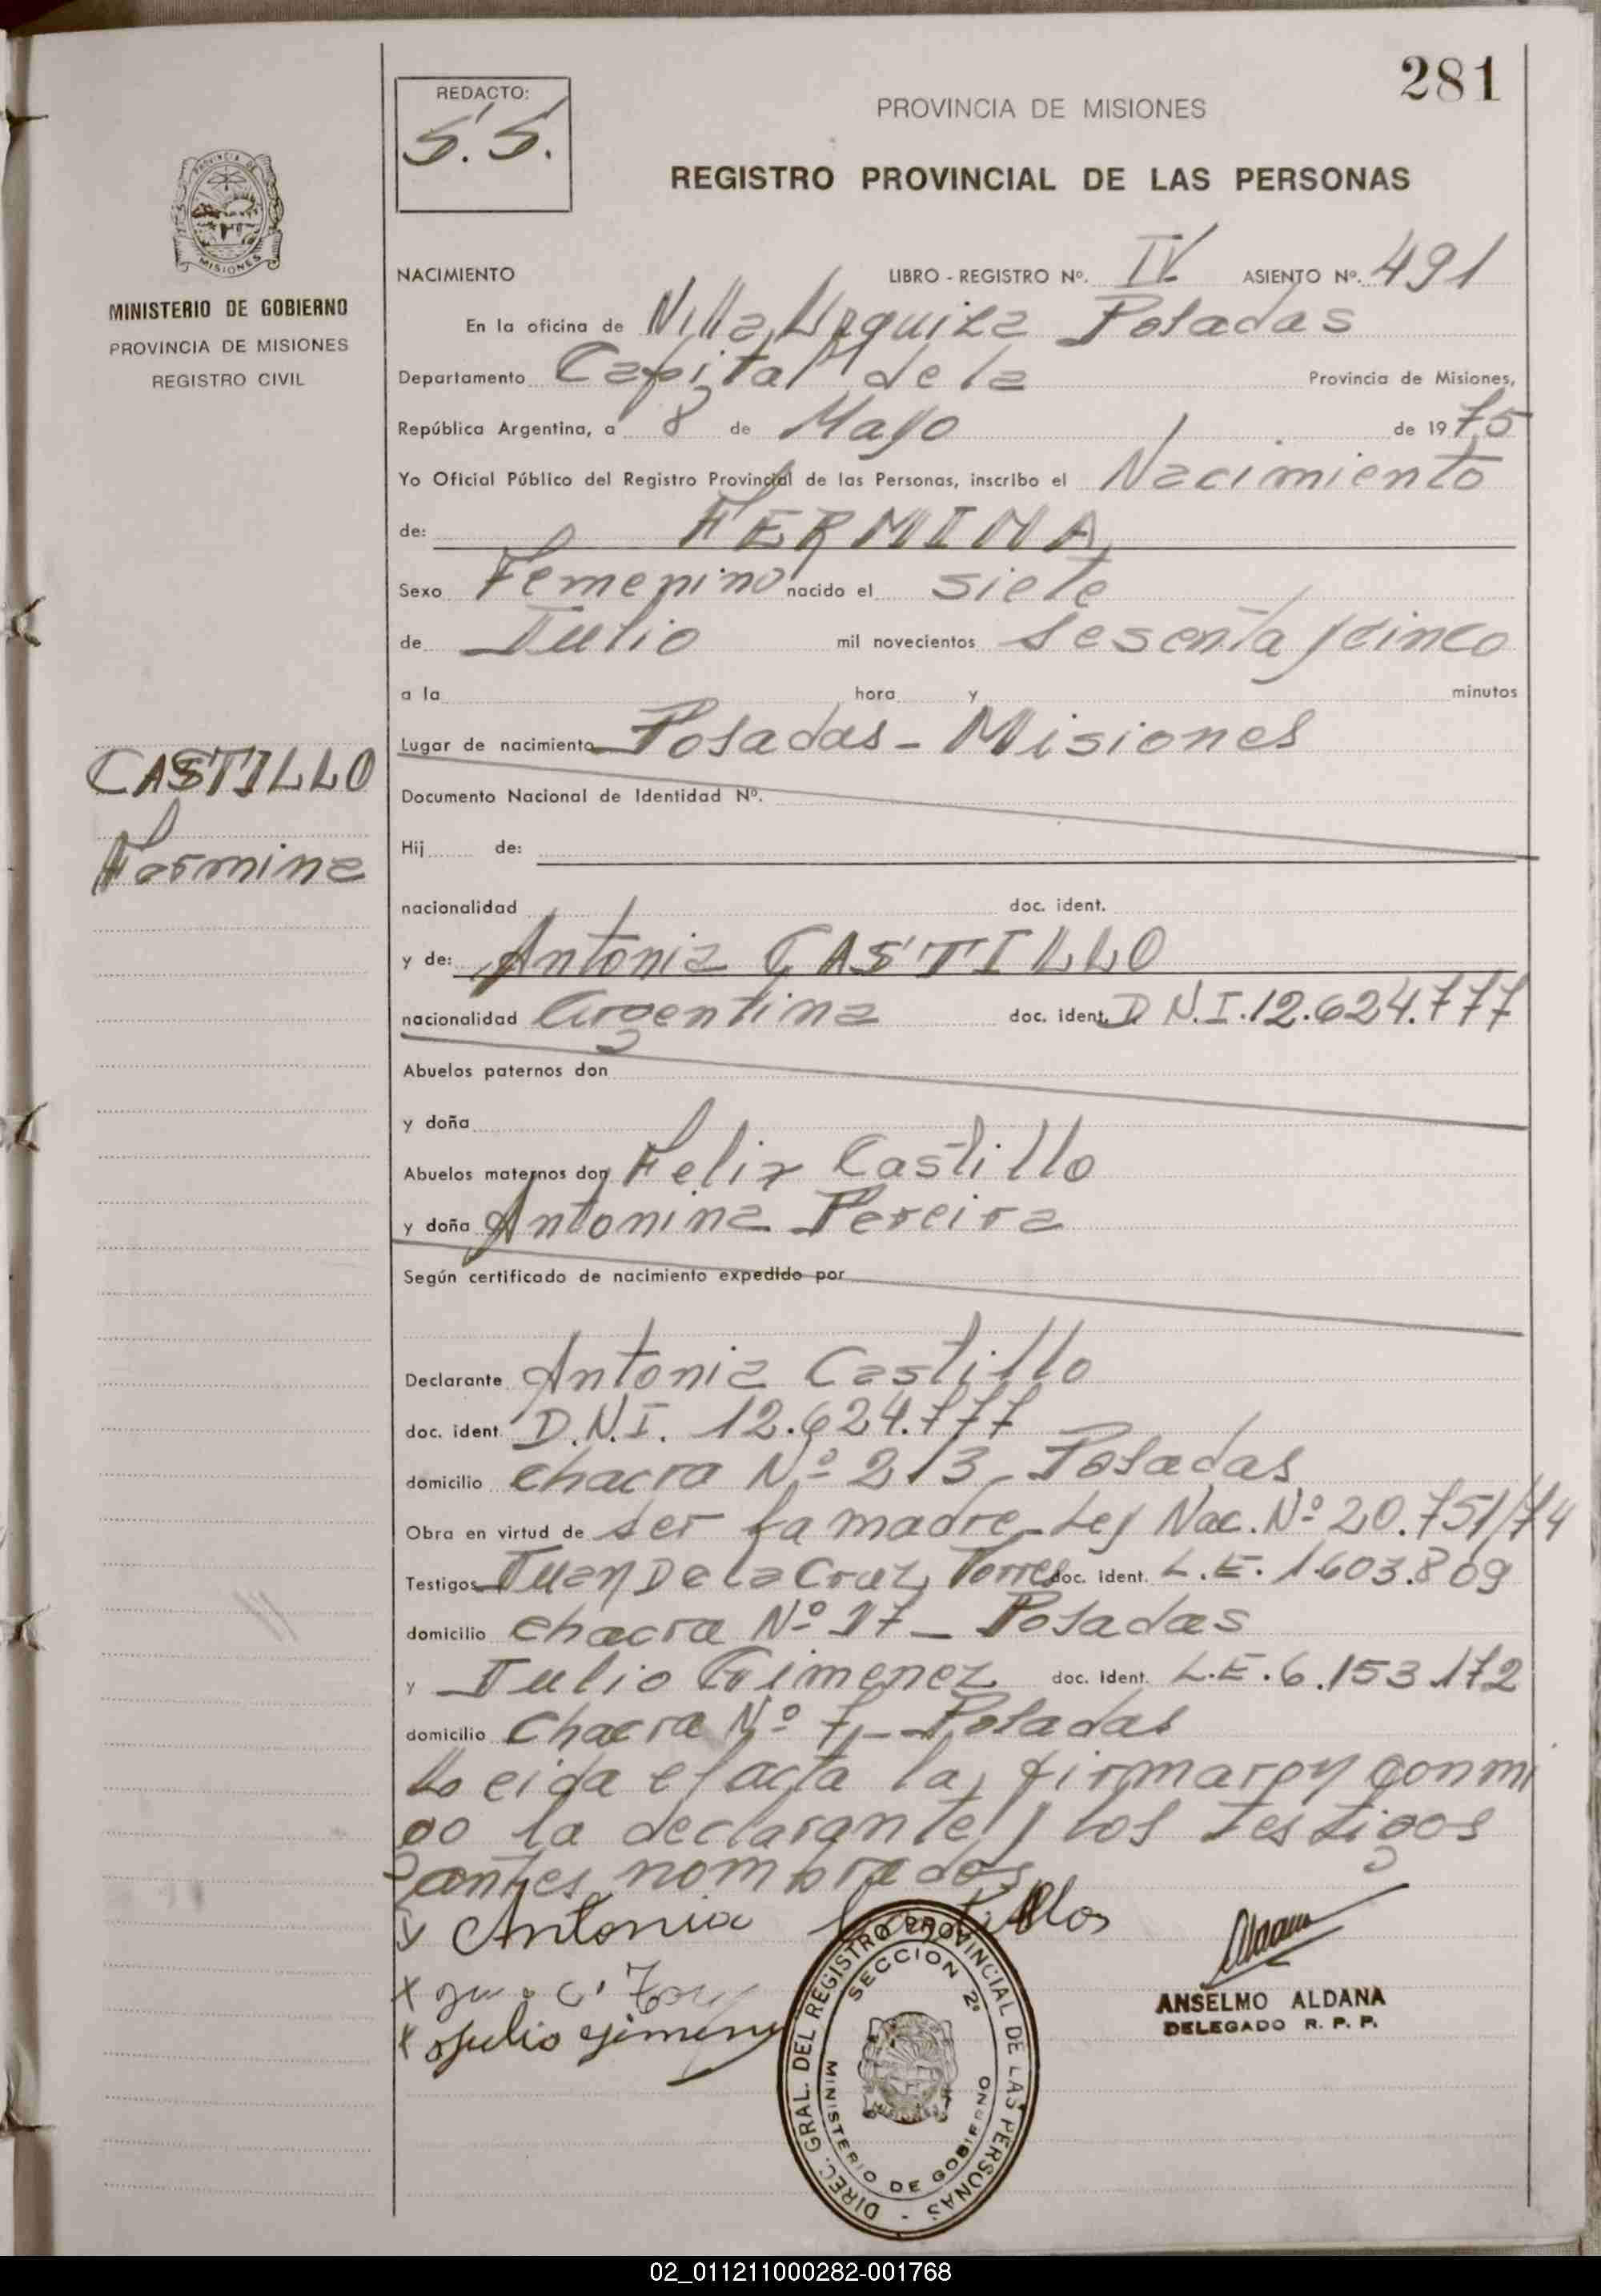 281
REDACTO:
S. S.
PROVINCIA DE MISIONES
REGISTRO PROVINCIAL DE LAS PERSONAS
PROVINCIA DE MISIONES
MINISTERIO DE GOBIERNO
PROVINCIA DE MISIONES
REGISTRO CIVIL
CASTILLO
Fermina
NACIMIENTO LIBRO - REGISTRO Nº. IV ASIENTO Nº. 491
En la oficina de Villa Urquiza Posadas
Departamento Capital de la Provincia de Misiones,
República Argentina, a 8 de Mayo de 1975
Yo Oficial Público del Registro Provincial de las Personas, inscribo el Nacimiento
de: FERMINA
Sexo Femenino nacido el siete
de Julio mil novecientos sesenta y cinco
a la hora y minutos
Lugar de nacimiento Posadas - Misiones
Documento Nacional de Identidad Nº.
Hij de:
nacionalidad doc. ident.
y de: Antonia CASTILLO
nacionalidad Argentina doc. ident. D.N.I. 12.624.777
Abuelos paternos don
y doña
Abuelos maternos don Felix Castillo
y doña Antonina Pereira
Según certificado de nacimiento expedido por
Declarante Antonia Castillo
doc. ident. D.N.I. 12.624.777
domicilio chacra Nº 213 - Posadas
Obra en virtud de ser la madre - Ley Nac. Nº 20.751/74
Testigos Juan De la Cruz Torres doc. ident. L.E. 1.603.809
domicilio chacra Nº 17 - Posadas
y Julio Gimenez doc. ident. L.E. 6.153.172
domicilio Chacra Nº 7 - Posadas
Leida el acta la firmaron conmi
go la declarante y los testigos
antes nombrados
x Antonia Castillos
x C. Torres
x Julio gimenez
DIREC. GRAL. DEL REGISTRO PROVINCIAL DE LAS PERSONAS -
SECCION 2ª
MINISTERIO DE GOBIERNO
ANSELMO ALDANA
DELEGADO R. P. P.
02_011211000282-001768